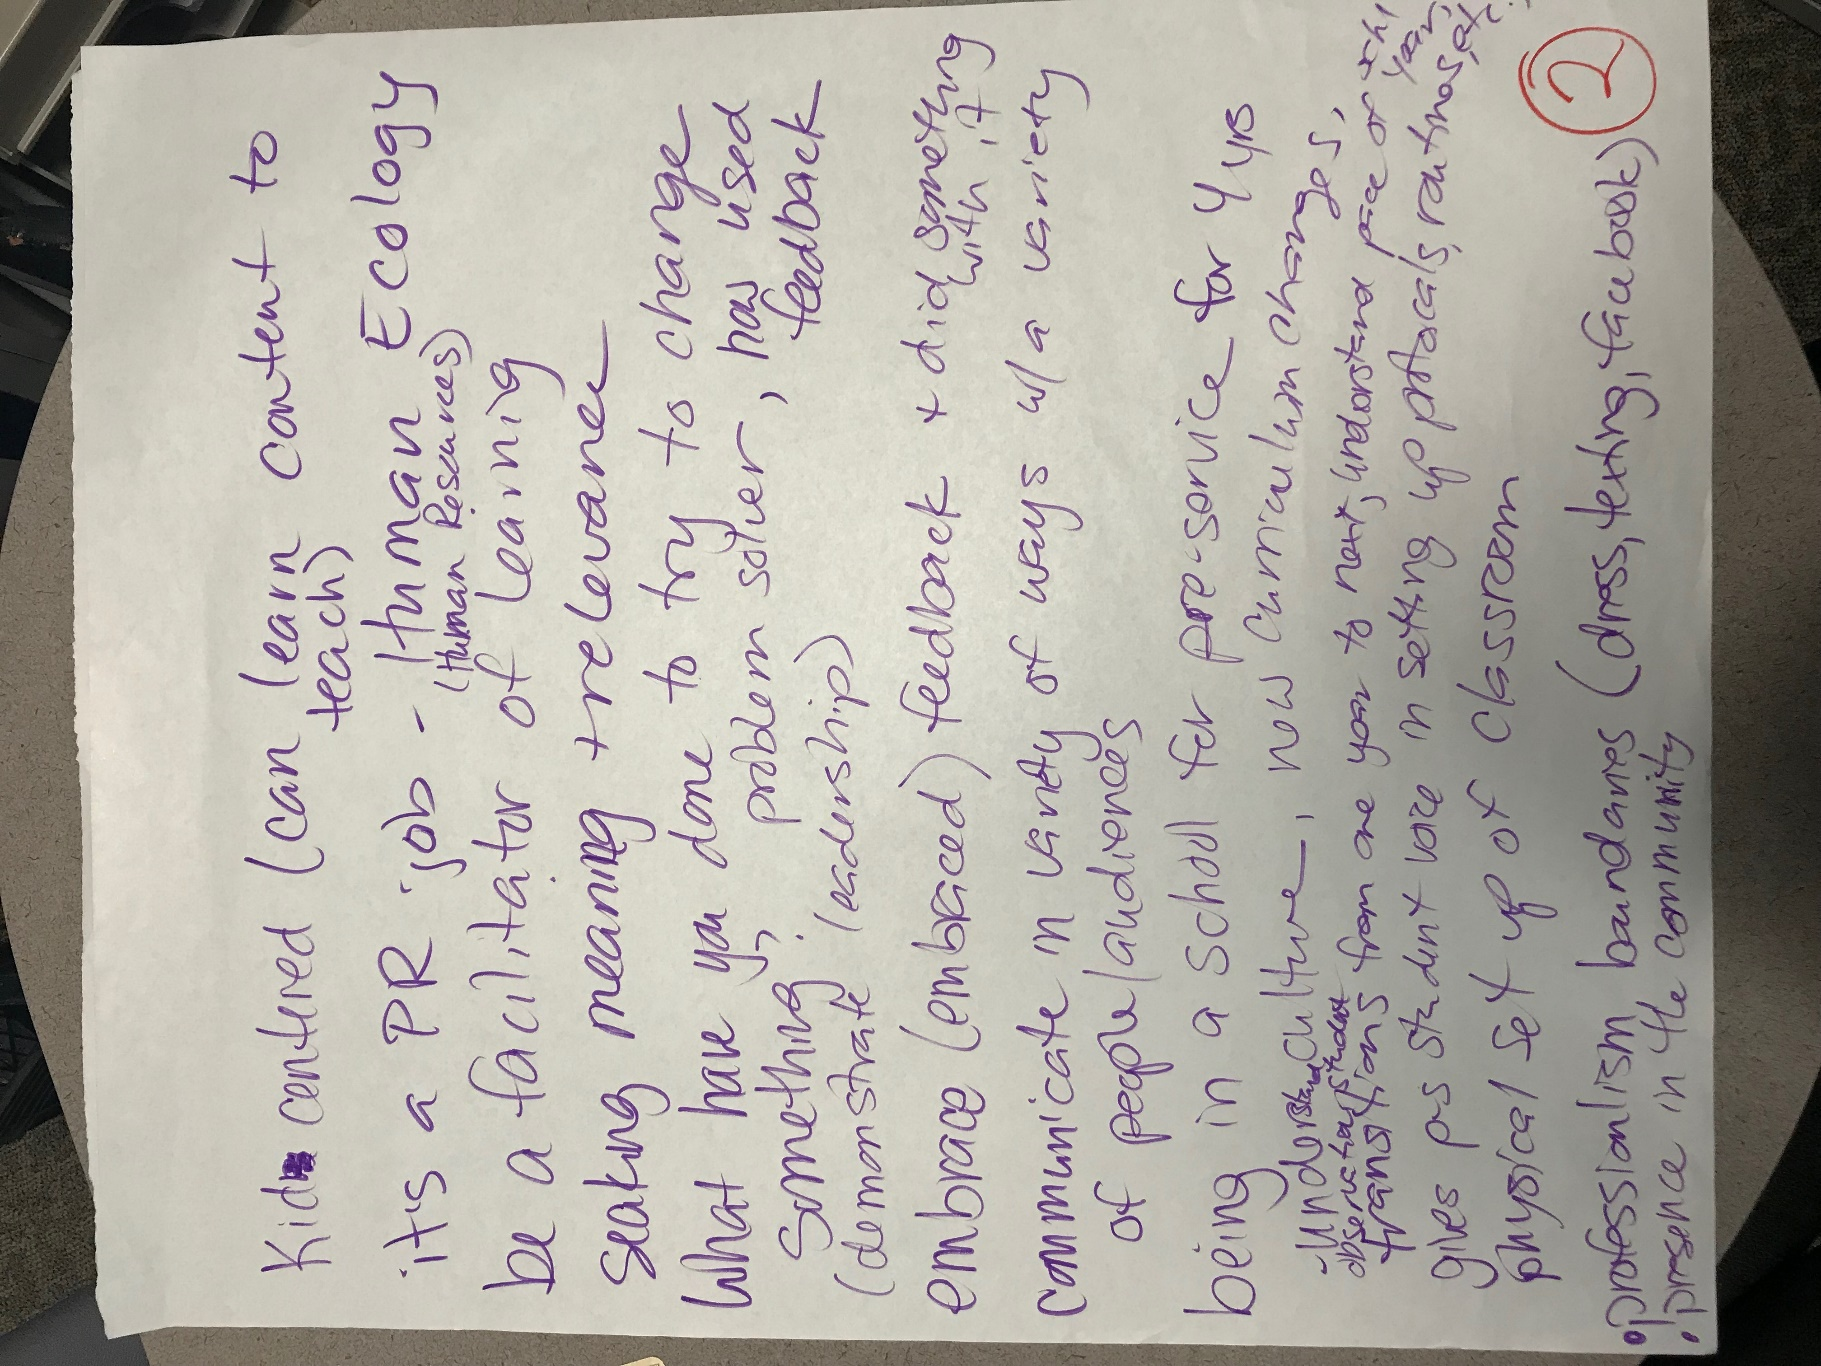 Kid centered (can learn content to
teach)
it's a PR job - Human Ecology
(Human Resources)
be a facilitator of learnig
seaking meaning + relevance
What have you done to try to change
something, problem solver, how used
feedback
(demonstrate leadership)
embrace (embraced) feedback + did something
with it
communicate in variety of ways w/ a variety
of people/audiences
being in a school for pre-service for 4 yrs
- understand culture, new curriculum changes,
observation student
transitions from one year to next, understand pace of
year,
gives ps student voice in setting up protocals, routines, etc.
physical set up of classroom
• professionalism boundaries (dress, texting, facebook)
• presence in the community
2